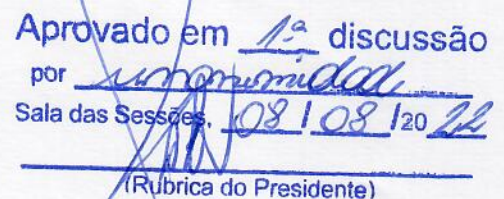 Aprovado em 1ª discussão
por unanimidade
Sala das Sessões, 08 / 08 /20 22
(Rubrica do Presidente)